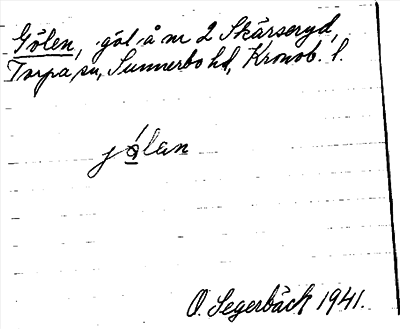 Gölen, göl å nr 2 Skärseryd,
Torpa sn, Sunnerbo hd, Kronob. l.
jö́lan
O. Segerbäck 1941.